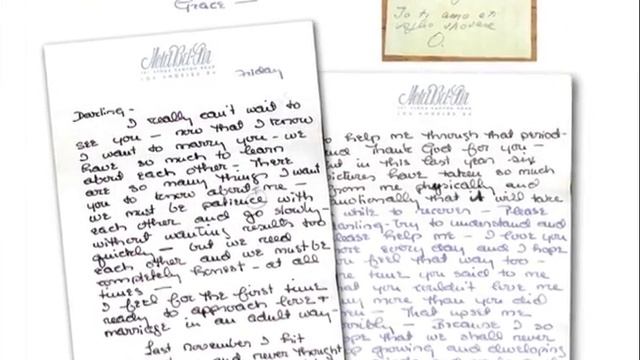 Grace —
Io ti amo e ti
O.
Hotel Bel-Air
LOS ANGELES 24
Friday
Darling -
I really can't wait to
see you - now that I know
I want to marry you - we
have so much to learn
about each other - There
are so many things I want
you to know about me -
we must be patience with
each other and go slowly -
without wanting results too
quickly - but we need
each other and we must be
completely honest - at all
times -
I feel for the first time
ready to approach love &
marriage in an adult way -
Last November I hit
and never thought
Hotel Bel-Air
LOS ANGELES 24
to help me through that period -
and Thank God for you -
But in this last year six
pictures have taken so much
from me physically and
emotionally that it will take
a while to recover - Please
darling - try to understand and
please help me - I love you
more every day and I hope
you feel that way too -
One time you said to me
that you couldn't love me
any more than you did
then - That upset me
terribly - Because I so
hope that we shall never
stop growing and developing